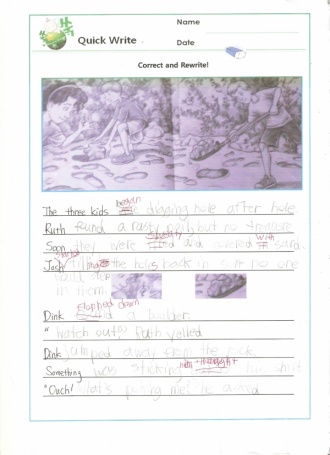 Name
Quick Write
Date
Correct and Rewrite!
began
The three kids digging hole after hole
Ruth found a rusty but no treasure
with
Soon they were and covered sand.
started
Josh filling the holes back in sure no one
would step
in them.
flopped down
Dink a boulder
"watch out," Ruth yelled
Dink jumped away from the rock.
Something was sticking his shirt
"Ouch! What's poking me? he asked